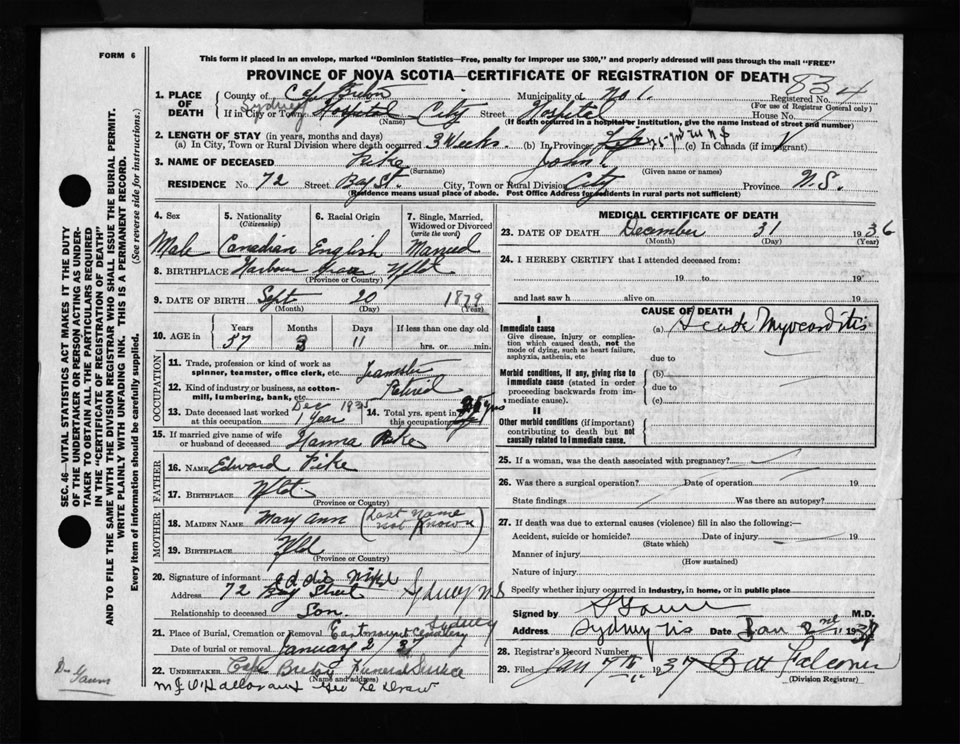 FORM 6
This form if placed in an envelope, marked "Dominion Statistics—Free, penalty for improper use $300," and properly addressed will pass through the mail "FREE"
PROVINCE OF NOVA SCOTIA—CERTIFICATE OF REGISTRATION OF DEATH
834
1. PLACE OF DEATH County of Cape Breton Municipality of No 1. Registered No.
(For use of Registrar General only)
If in City or Town Sydney Hospital City Street Hospital House No.
(Name) (If death occurred in a hospital or institution, give the name instead of street and number)
2. LENGTH OF STAY (in years, months and days)
(a) In City, Town or Rural Division where death occurred 3 Weeks. (b) In Province Life (c) In Canada (if immigrant)
3. NAME OF DECEASED Pike John
(Surname) (Given name or names)
RESIDENCE No. 72 Street Bay St. City, Town or Rural Division City Province N.S.
(Residence means usual place of abode. Post Office Address for residents in rural parts not sufficient)
4. Sex 5. Nationality (Citizenship) 6. Racial Origin 7. Single, Married, Widowed or Divorced (write the word)
Male Canadian English Married
8. BIRTHPLACE Harbour Grace Nfld
(Province or Country)
9. DATE OF BIRTH Sept 20 1879
(Month) (Day) (Year)
10. AGE in Years Months Days If less than one day old
57 3 11 hrs. or min.
OCCUPATION
11. Trade, profession or kind of work as spinner, teamster, office clerk, etc. Teamster
12. Kind of industry or business, as cotton-mill, lumbering, bank, etc. Retired
13. Date deceased last worked at this occupation Dec 1935 1 Year
14. Total yrs. spent in this occupation yrs
15. If married give name of wife or husband of deceased Hanna Pike
FATHER
16. NAME Edward Pike
17. BIRTHPLACE Nfld
(Province or Country)
MOTHER
18. MAIDEN NAME Mary Ann (Last name not known)
19. BIRTHPLACE Nfld
(Province or Country)
20. Signature of informant
Address 72 Bay Street Sydney NS
Relationship to deceased Son.
21. Place of Burial, Cremation or Removal Eastmount Cemetery Sydney
Date of burial or removal January 2/37
22. UNDERTAKER Cape Breton Funeral Service
(Name and address)
M J O'Halloran
MEDICAL CERTIFICATE OF DEATH
23. DATE OF DEATH December 31 1936
(Month) (Day) (Year)
24. I HEREBY CERTIFY that I attended deceased from:
19 to 19
and last saw h alive on 19
CAUSE OF DEATH
I
Immediate cause (a) Acute Myocarditis
Give disease, injury or complication which caused death, not the mode of dying, such as heart failure, asphyxia, asthenia, etc
due to
Morbid conditions, if any, giving rise to immediate cause (stated in order proceeding backwards from immediate cause).
(b)
due to
(c)
II
Other morbid conditions (if important) contributing to death but not causally related to immediate cause.
25. If a woman, was the death associated with pregnancy?
26. Was there a surgical operation? Date of operation 19
State findings Was there an autopsy?
27. If death was due to external causes (violence) fill in also the following:—
Accident, suicide or homicide? Date of injury 19
(State which)
Manner of injury
(How sustained)
Nature of injury
Specify whether injury occurred in industry, in home, or in public place
Signed by M.D.
Address Sydney NS Date Jan 2nd 1937
28. Registrar's Record Number
29. Filed Jan 7th 1937 Falconer
(Division Registrar)
SEC. 46—VITAL STATISTICS ACT MAKES IT THE DUTY
OF THE UNDERTAKER OR PERSON ACTING AS UNDER-
TAKER TO OBTAIN ALL THE PARTICULARS REQUIRED
IN THE "CERTIFICATE OF REGISTRATION OF DEATH"
AND TO FILE THE SAME WITH THE DIVISION REGISTRAR WHO SHALL ISSUE THE BURIAL PERMIT.
WRITE PLAINLY WITH UNFADING INK. THIS IS A PERMANENT RECORD.
Every item of information should be carefully supplied. (See reverse side for instructions.)